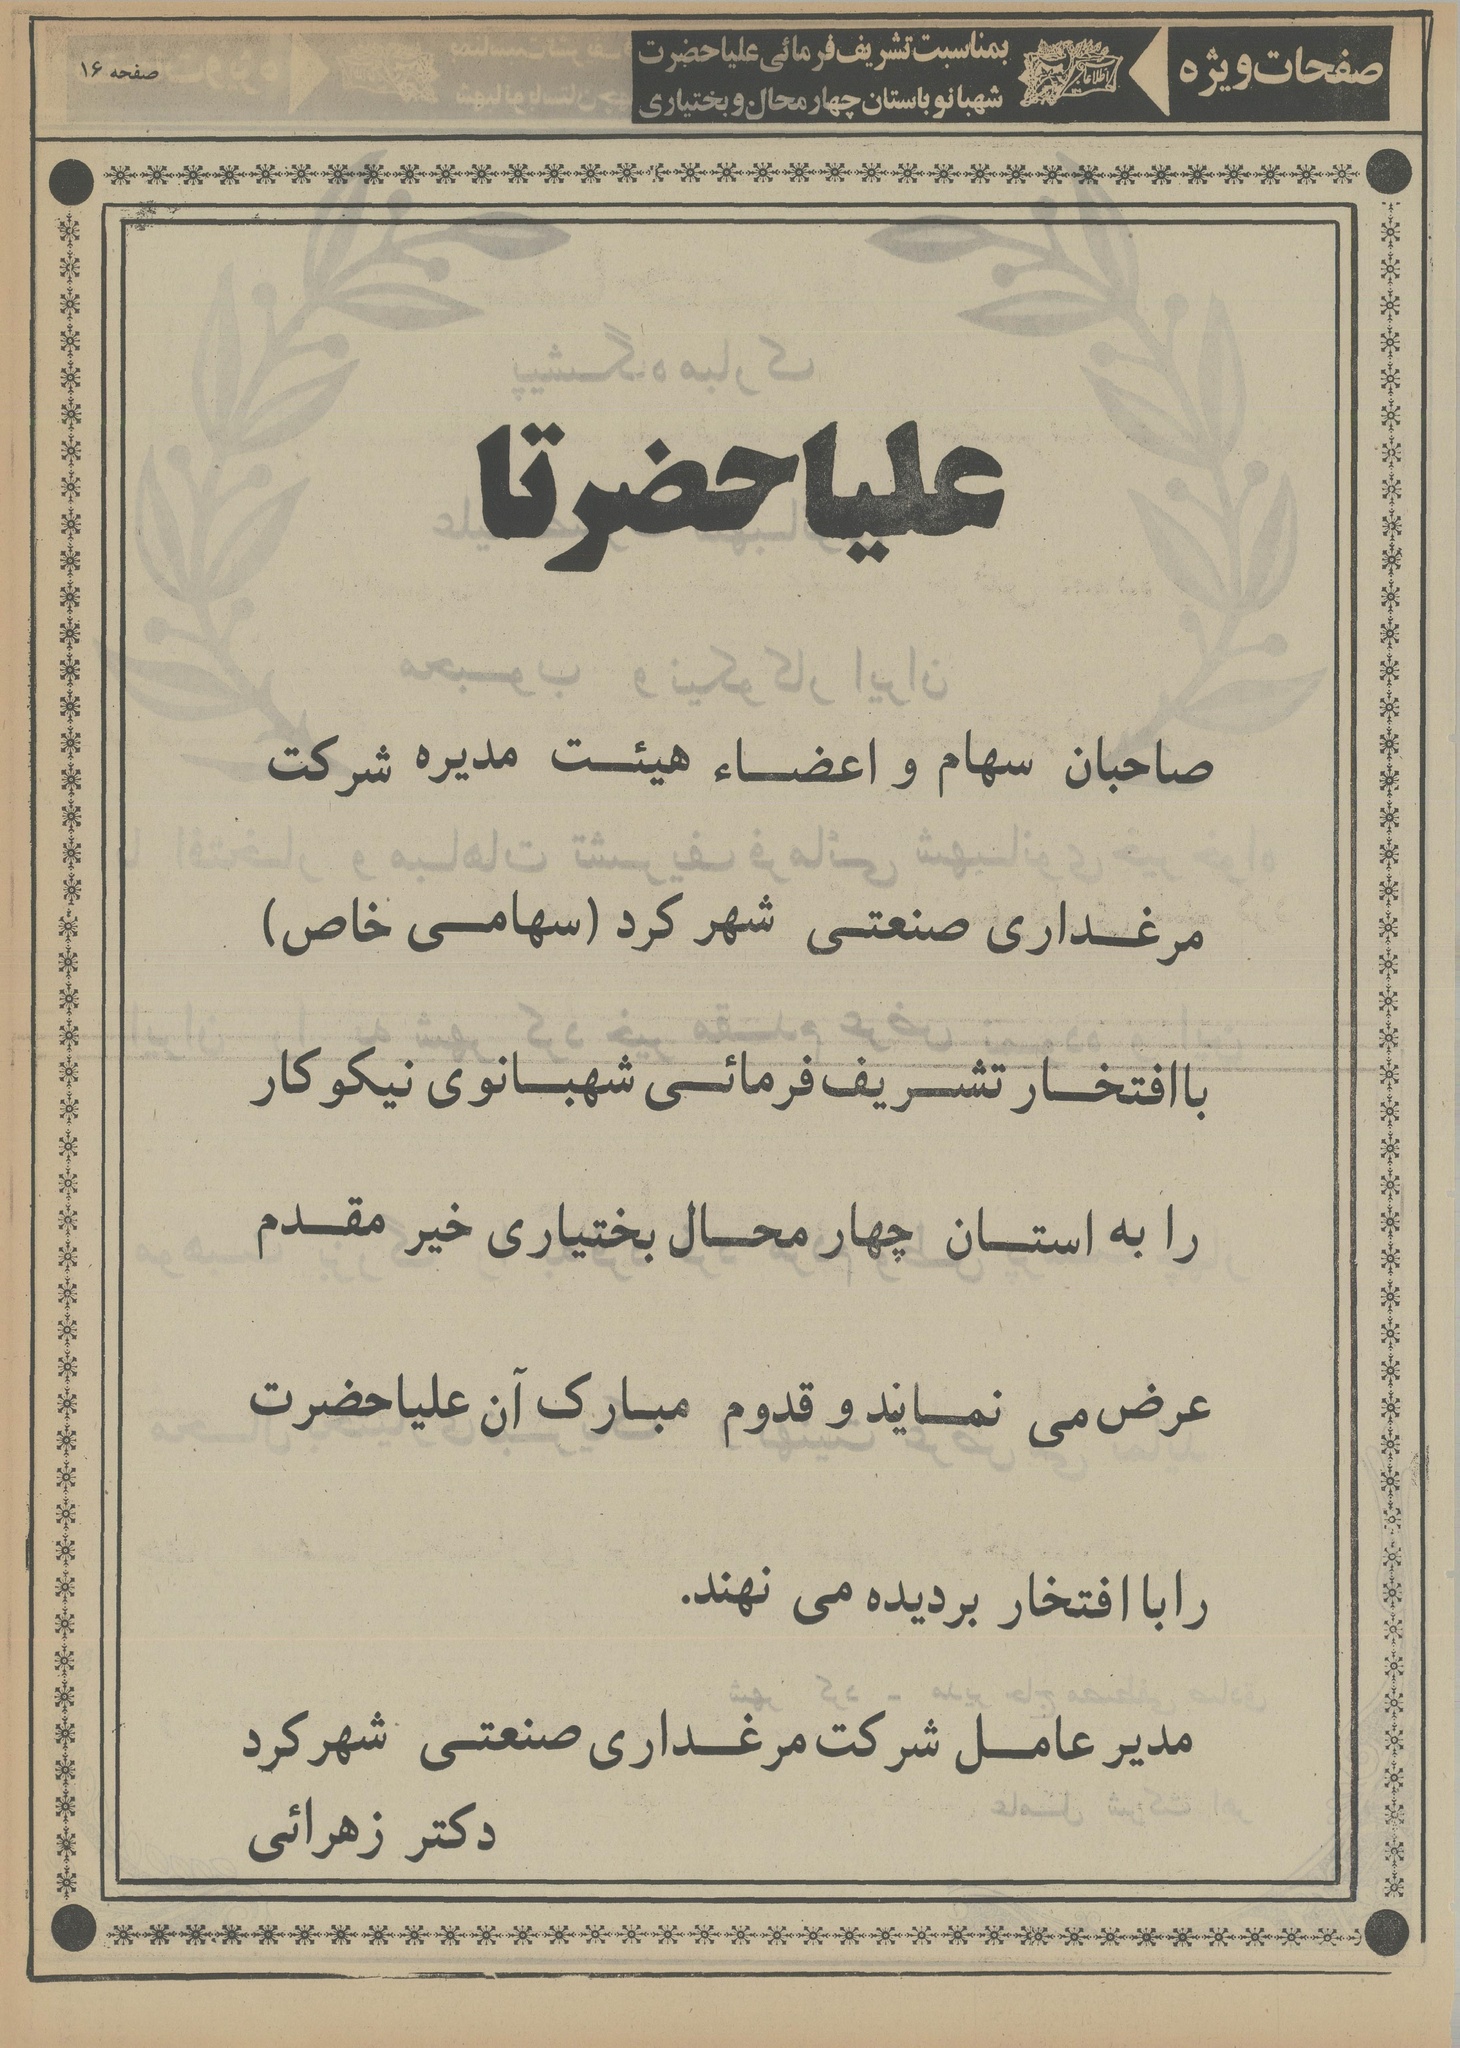 صفحات ویژه
بمناسبت تشریف فرمائی علیاحضرت
شهبانو باستان چهار محال و بختیاری
اطلاعات
صفحه ۱۶
علیاحضرتا
صاحبان سهام و اعضاء هیئت مدیره شرکت
مرغداری صنعتی شهر کرد (سهامی خاص)
باافتخار تشریف فرمائی شهبانوی نیکو کار
را به استان چهار محال بختیاری خیر مقدم
عرض می نماید و قدوم مبارک آن علیاحضرت
را با افتخار بردیده می نهند.
مدیر عامل شرکت مرغداری صنعتی شهر کرد
دکتر زهرائی